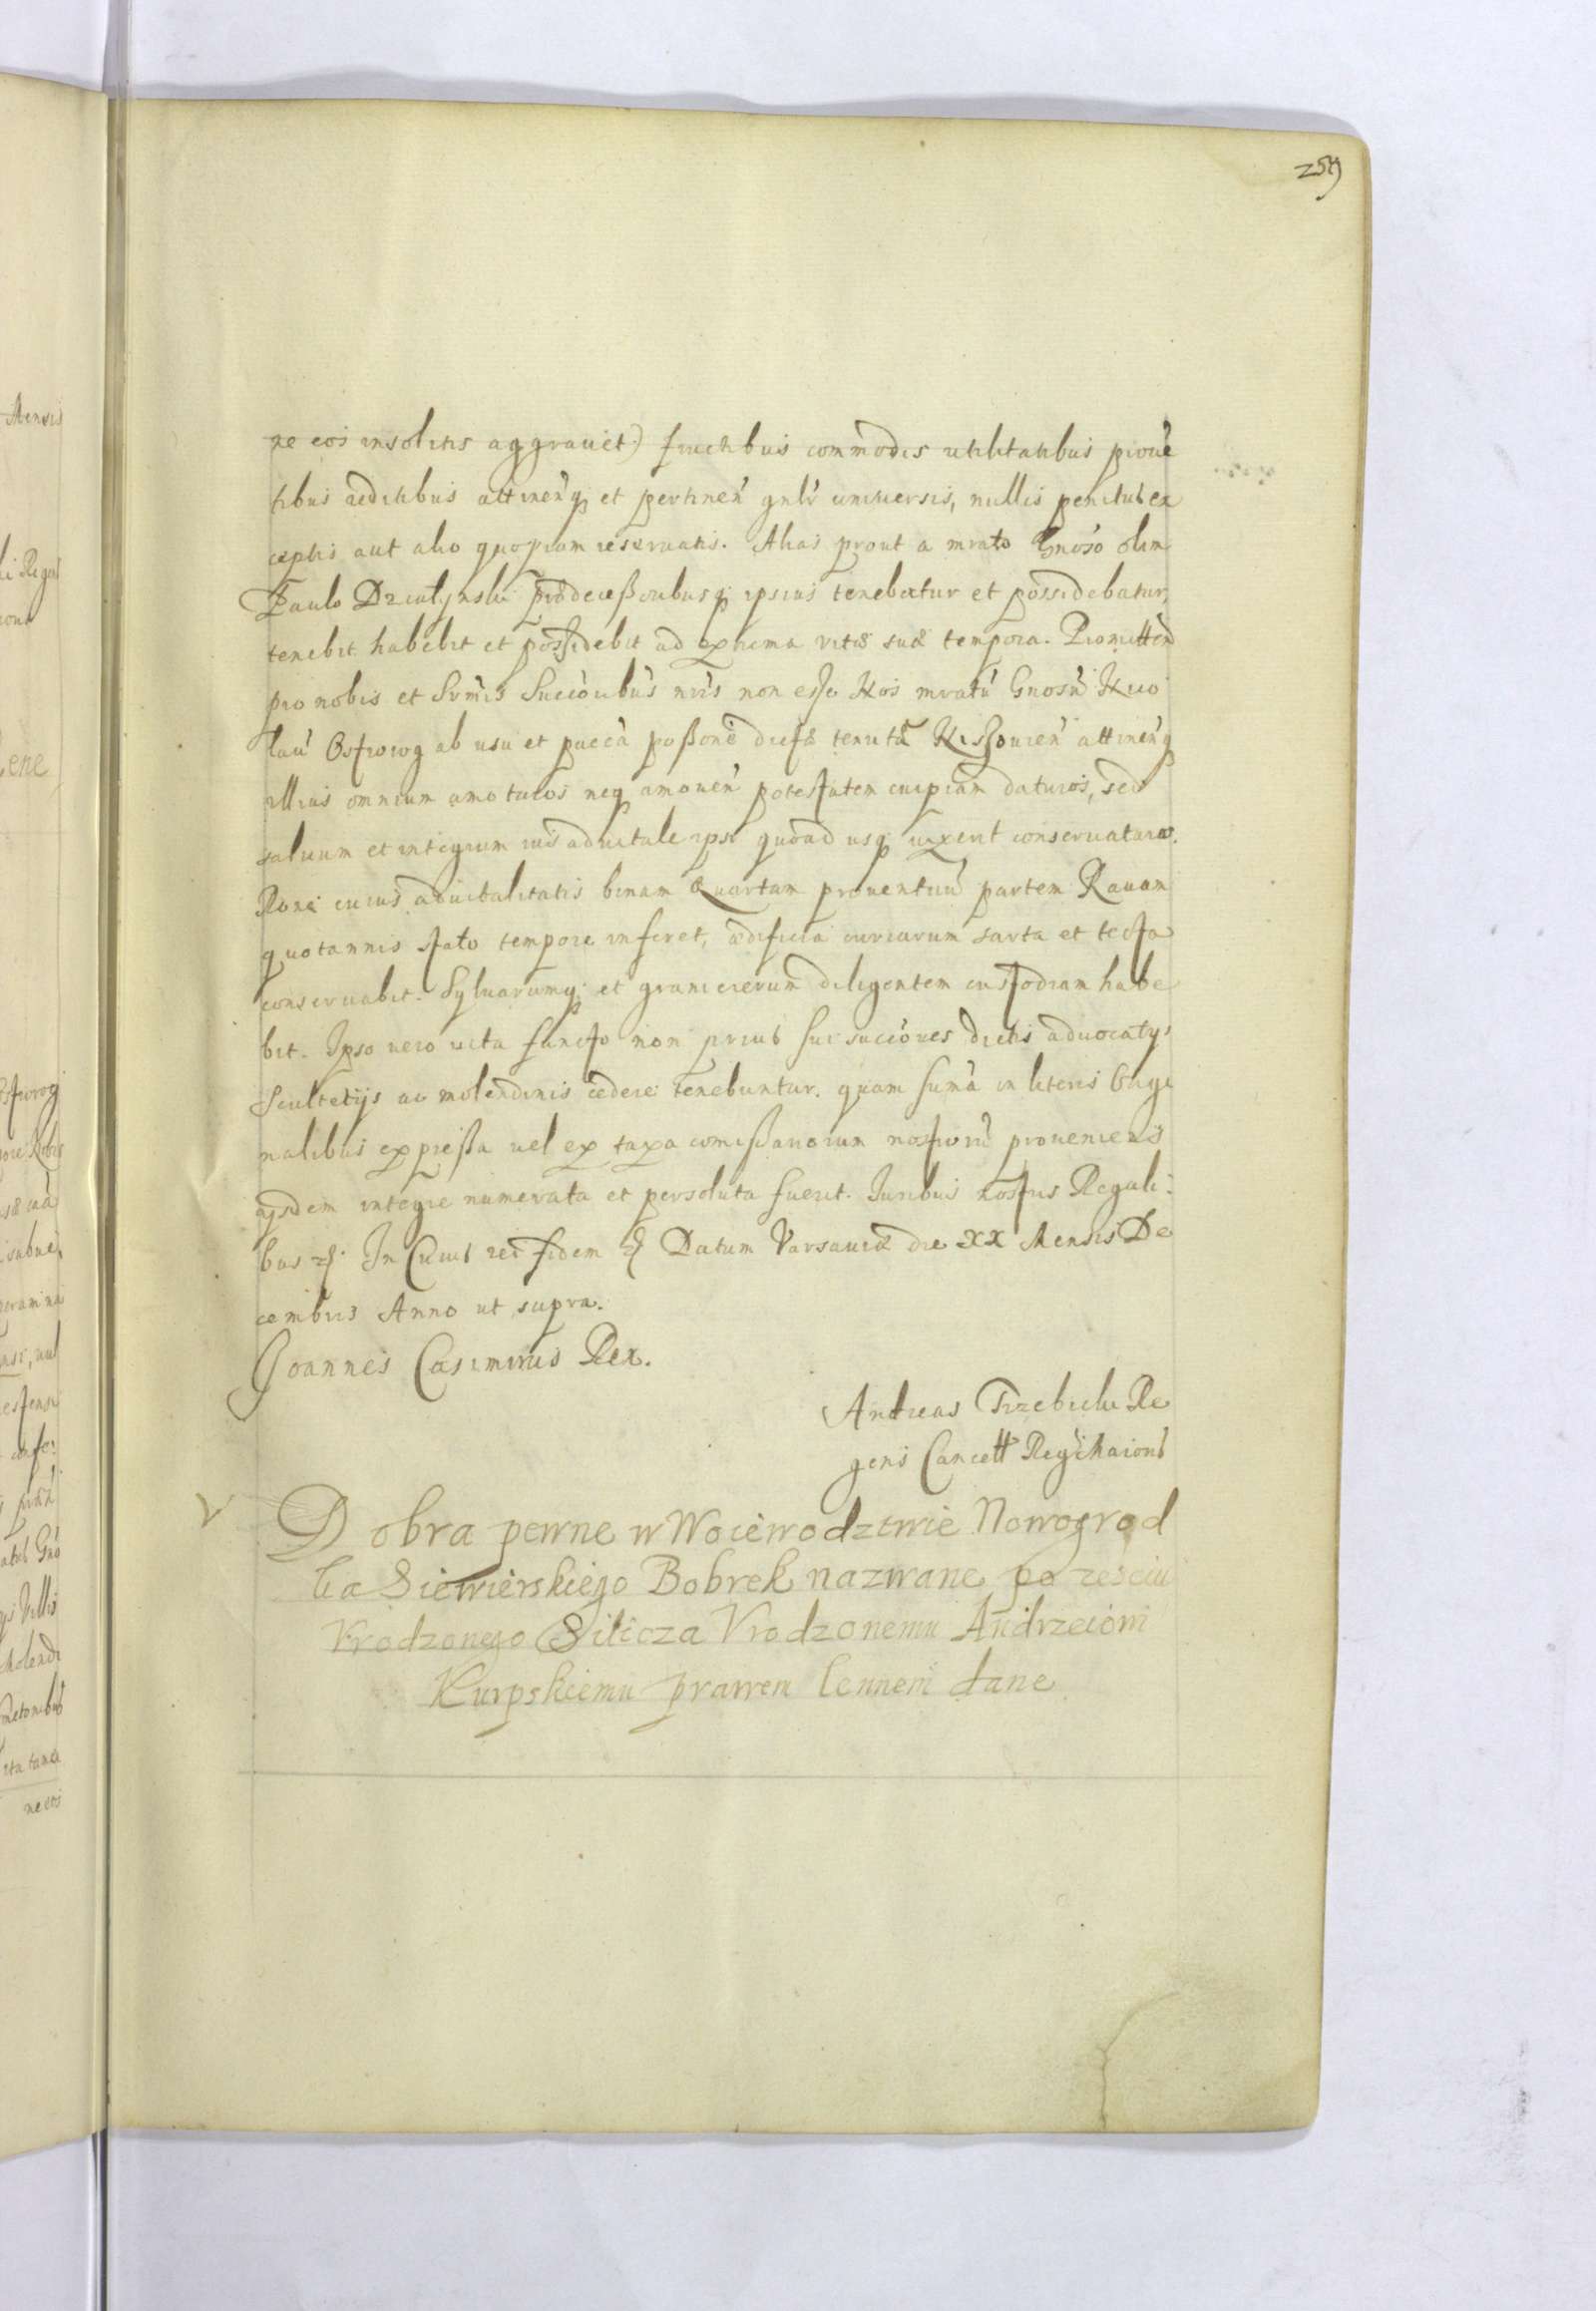 259
ne eos insolitis aggravet) fructibus commodis utilitatibus prove
tibus reditibus attineñq; et pertineñ gnlr universis, nullis penitus ex
ceptis aut alio quopiam reservatis. Alias prout a mrato Gnoso olim
Paulo Dzialynski prædecessoribusq; ipsius tenebatur et possidebatur,
tenebit habebit et possidebit ad extrema vitæ suæ tempora. Promitten
pro nobis et Srmis Succoribus nris non esse Nos mratu Gnosu Nico
lau Ostrorog ab usu et pacca possone dictæ tenutæ Kiszovien attineñq
illius omnium amoturos neq; amoven potestatem cuipiam daturos, sed
salvum et integrum ius advitale ipsi quoad usq; vixerit conservaturos.
Rone cuius advitalitatis binam Quartam proventuu partem Ravam
quotannis stato tempore inferet, ædificia curiarum sarta et tecta
conservabit. Sylvarumq; et granicierum diligentem custodiam habe
bit. Ipso vero vita functo non prius sui succores dictis advocatys
Scultetijs ac molendinis cedere tenebuntur. quam suma in literis Origi
nalibus expressa vel ex taxa comissariorum nostroru proveniens
ajsdem integre numerata et persoluta fuerit. Juribus nostris Regali:
bus &. In Cuius rei fidem & Datum Varsaviæ die XX Mensis De
cembris Anno ut supra.
Joannes Casimirus Rex.
Andreas Trzebicki Re
gens Cancell Reg Maioris
V
Dobra pewne w Woiewodztwie Nowogrod
ka Siewierskiego Bobrek nazwane po zesciu
Vrodzonego Silicza Vrodzonemu Andrzeiowi
Kurpskiemu prawem lennem dane